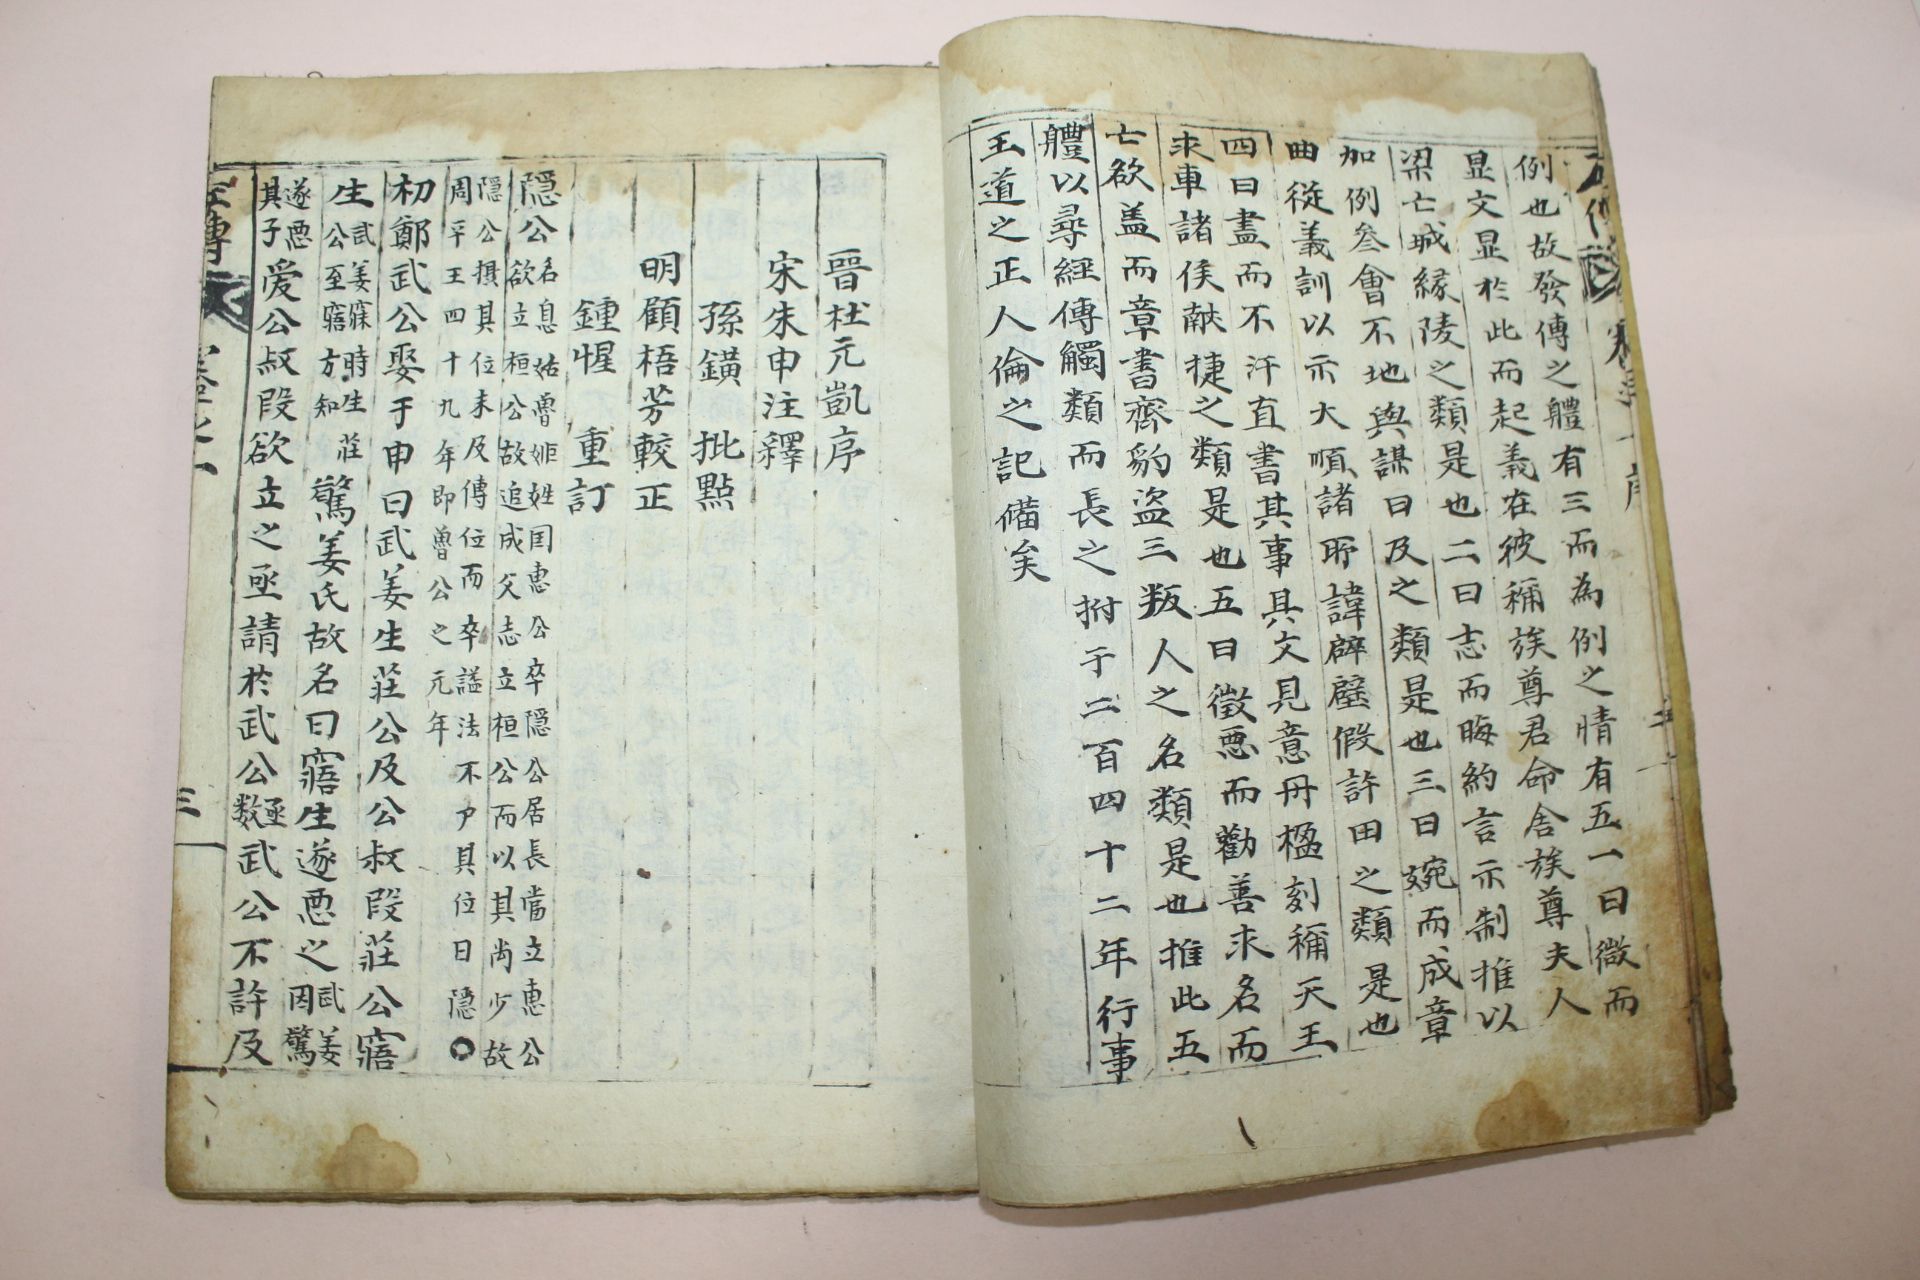 例也故發傳之體有三而為例之情有五一曰微而
显文显於此而起義在彼稱族尊君命舍族尊夫人
梁亡城縁陵之類是也二曰志而晦約言示制推以
加例叅會不地與謀曰及之類是也三曰婉而成章
曲從義訓以示大順諸所諱辟壁假許田之類是也
四曰盡而不汙直書其事具文見意丹楹刻稱天王
求車諸侯献捷之類是也五曰徵悪而勸善求名而
亡欲盖而章書齊豹盗三叛人之名類是也推此五
體以尋經傳觸類而長之拊于二百四十二年行事
王道之正人倫之記備矣
晉杜元凱序
宋朱申注釋
孫鑛批點
明顧梧芳較正
鍾惺重訂
隠公名息姑魯姬姓囯惠公卒隠公居長當立惠公
欲立桓公故追成父志立桓公而以其尚少故
隠公摂其位未及傳位而卒謚法不尸具位曰隠
周平王四十九年即魯公之元年
初鄭武公娶于申曰武姜生莊公及公叔段莊公寤
生武姜寐時生莊公至寤方知驚姜氏故名曰寤生遂悪之武姜因驚
遂悪其子爱公叔段欲立之亟請於武公亟数武公不許及
左傳
卷之一
三